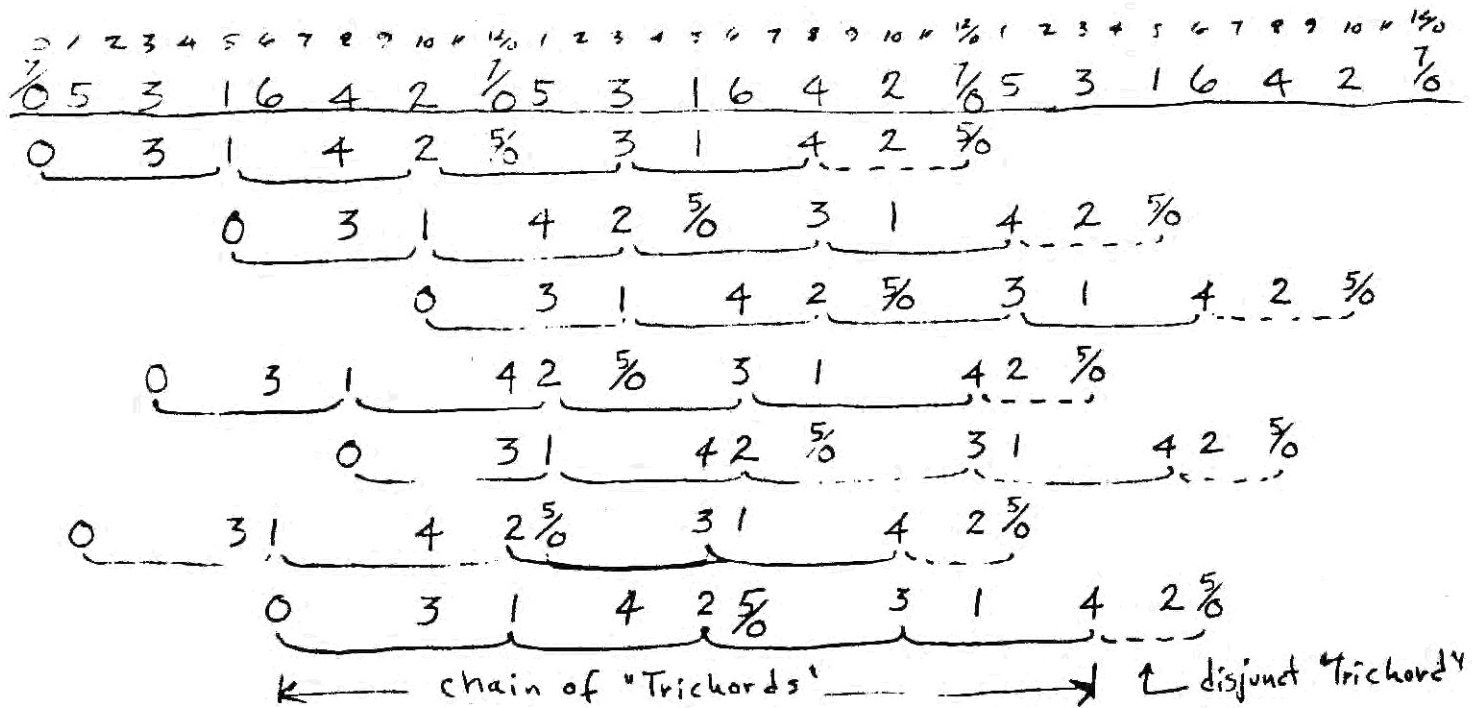 0 1 2 3 4 5 6 7 8 9 10 11 12/0 1 2 3 4 5 6 7 8 9 10 11 12/0 1 2 3 4 5 6 7 8 9 10 11 12/0
7/0 5 3 1 6 4 2 7/0 5 3 1 6 4 2 7/0 5 3 1 6 4 2 7/0
0 3 1 4 2 5/0 3 1 4 2 5/0
0 3 1 4 2 5/0 3 1 4 2 5/0
0 3 1 4 2 5/0 3 1 4 2 5/0
0 3 1 4 2 5/0 3 1 4 2 5/0
0 3 1 4 2 5/0 3 1 4 2 5/0
0 3 1 4 2 5/0 3 1 4 2 5/0
0 3 1 4 2 5/0 3 1 4 2 5/0
chain of "Trichords" disjunct "Trichord"